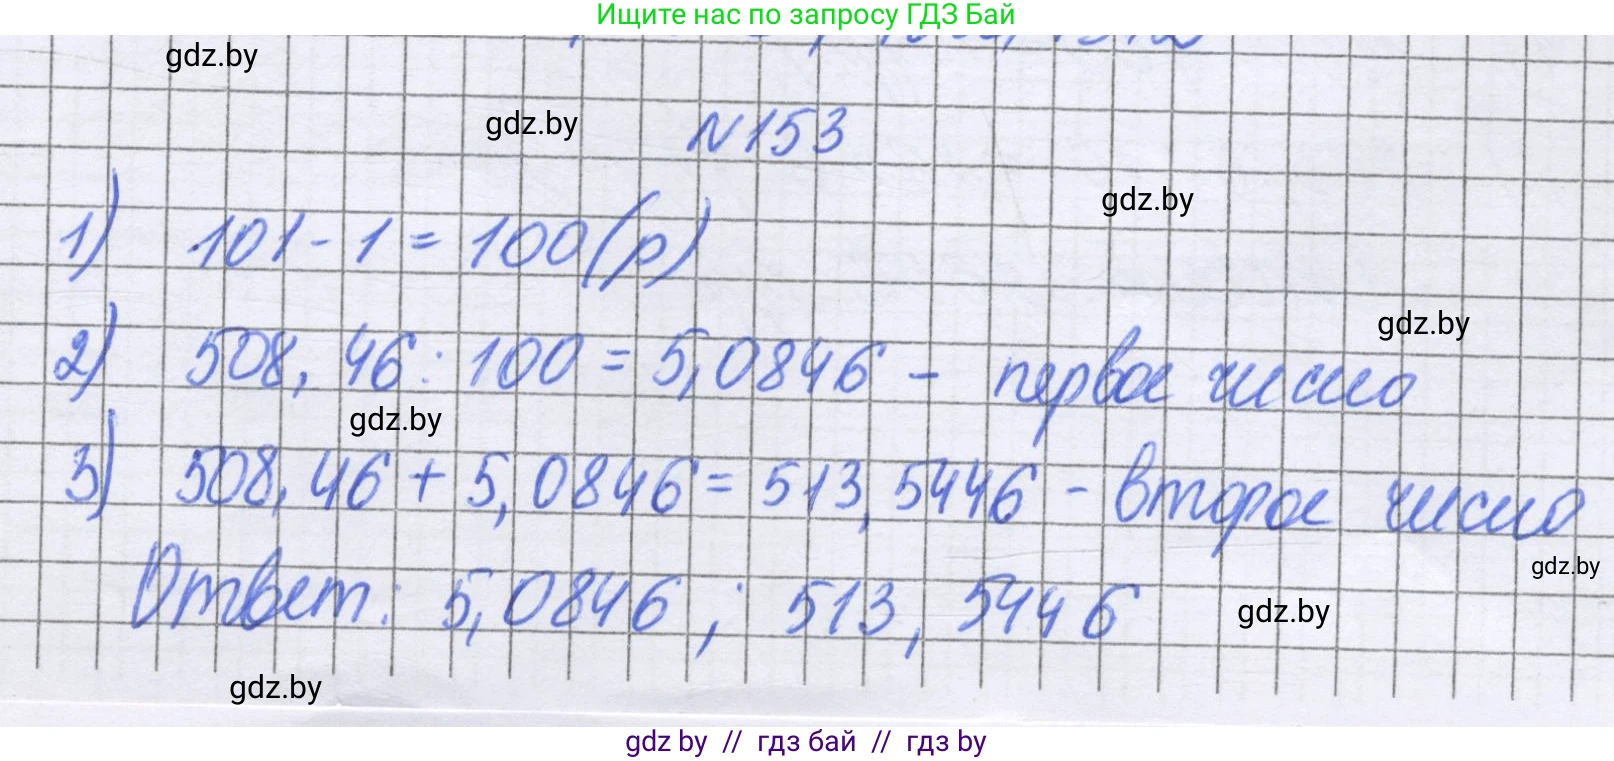 Ищите нас по запросу ГДЗ Бай
gdz.by
gdz.by
N153
gdz.by
1) 101 - 1 = 100 (р)
gdz.by
2) 508, 46 : 100 = 5,0846 - первое число
gdz.by
3) 508, 46 + 5,0846 = 513,5446 - второе число
gdz.by
Ответ: 5,0846 ; 513, 5446
gdz.by
gdz.by
gdz by // гдз бай // гдз by